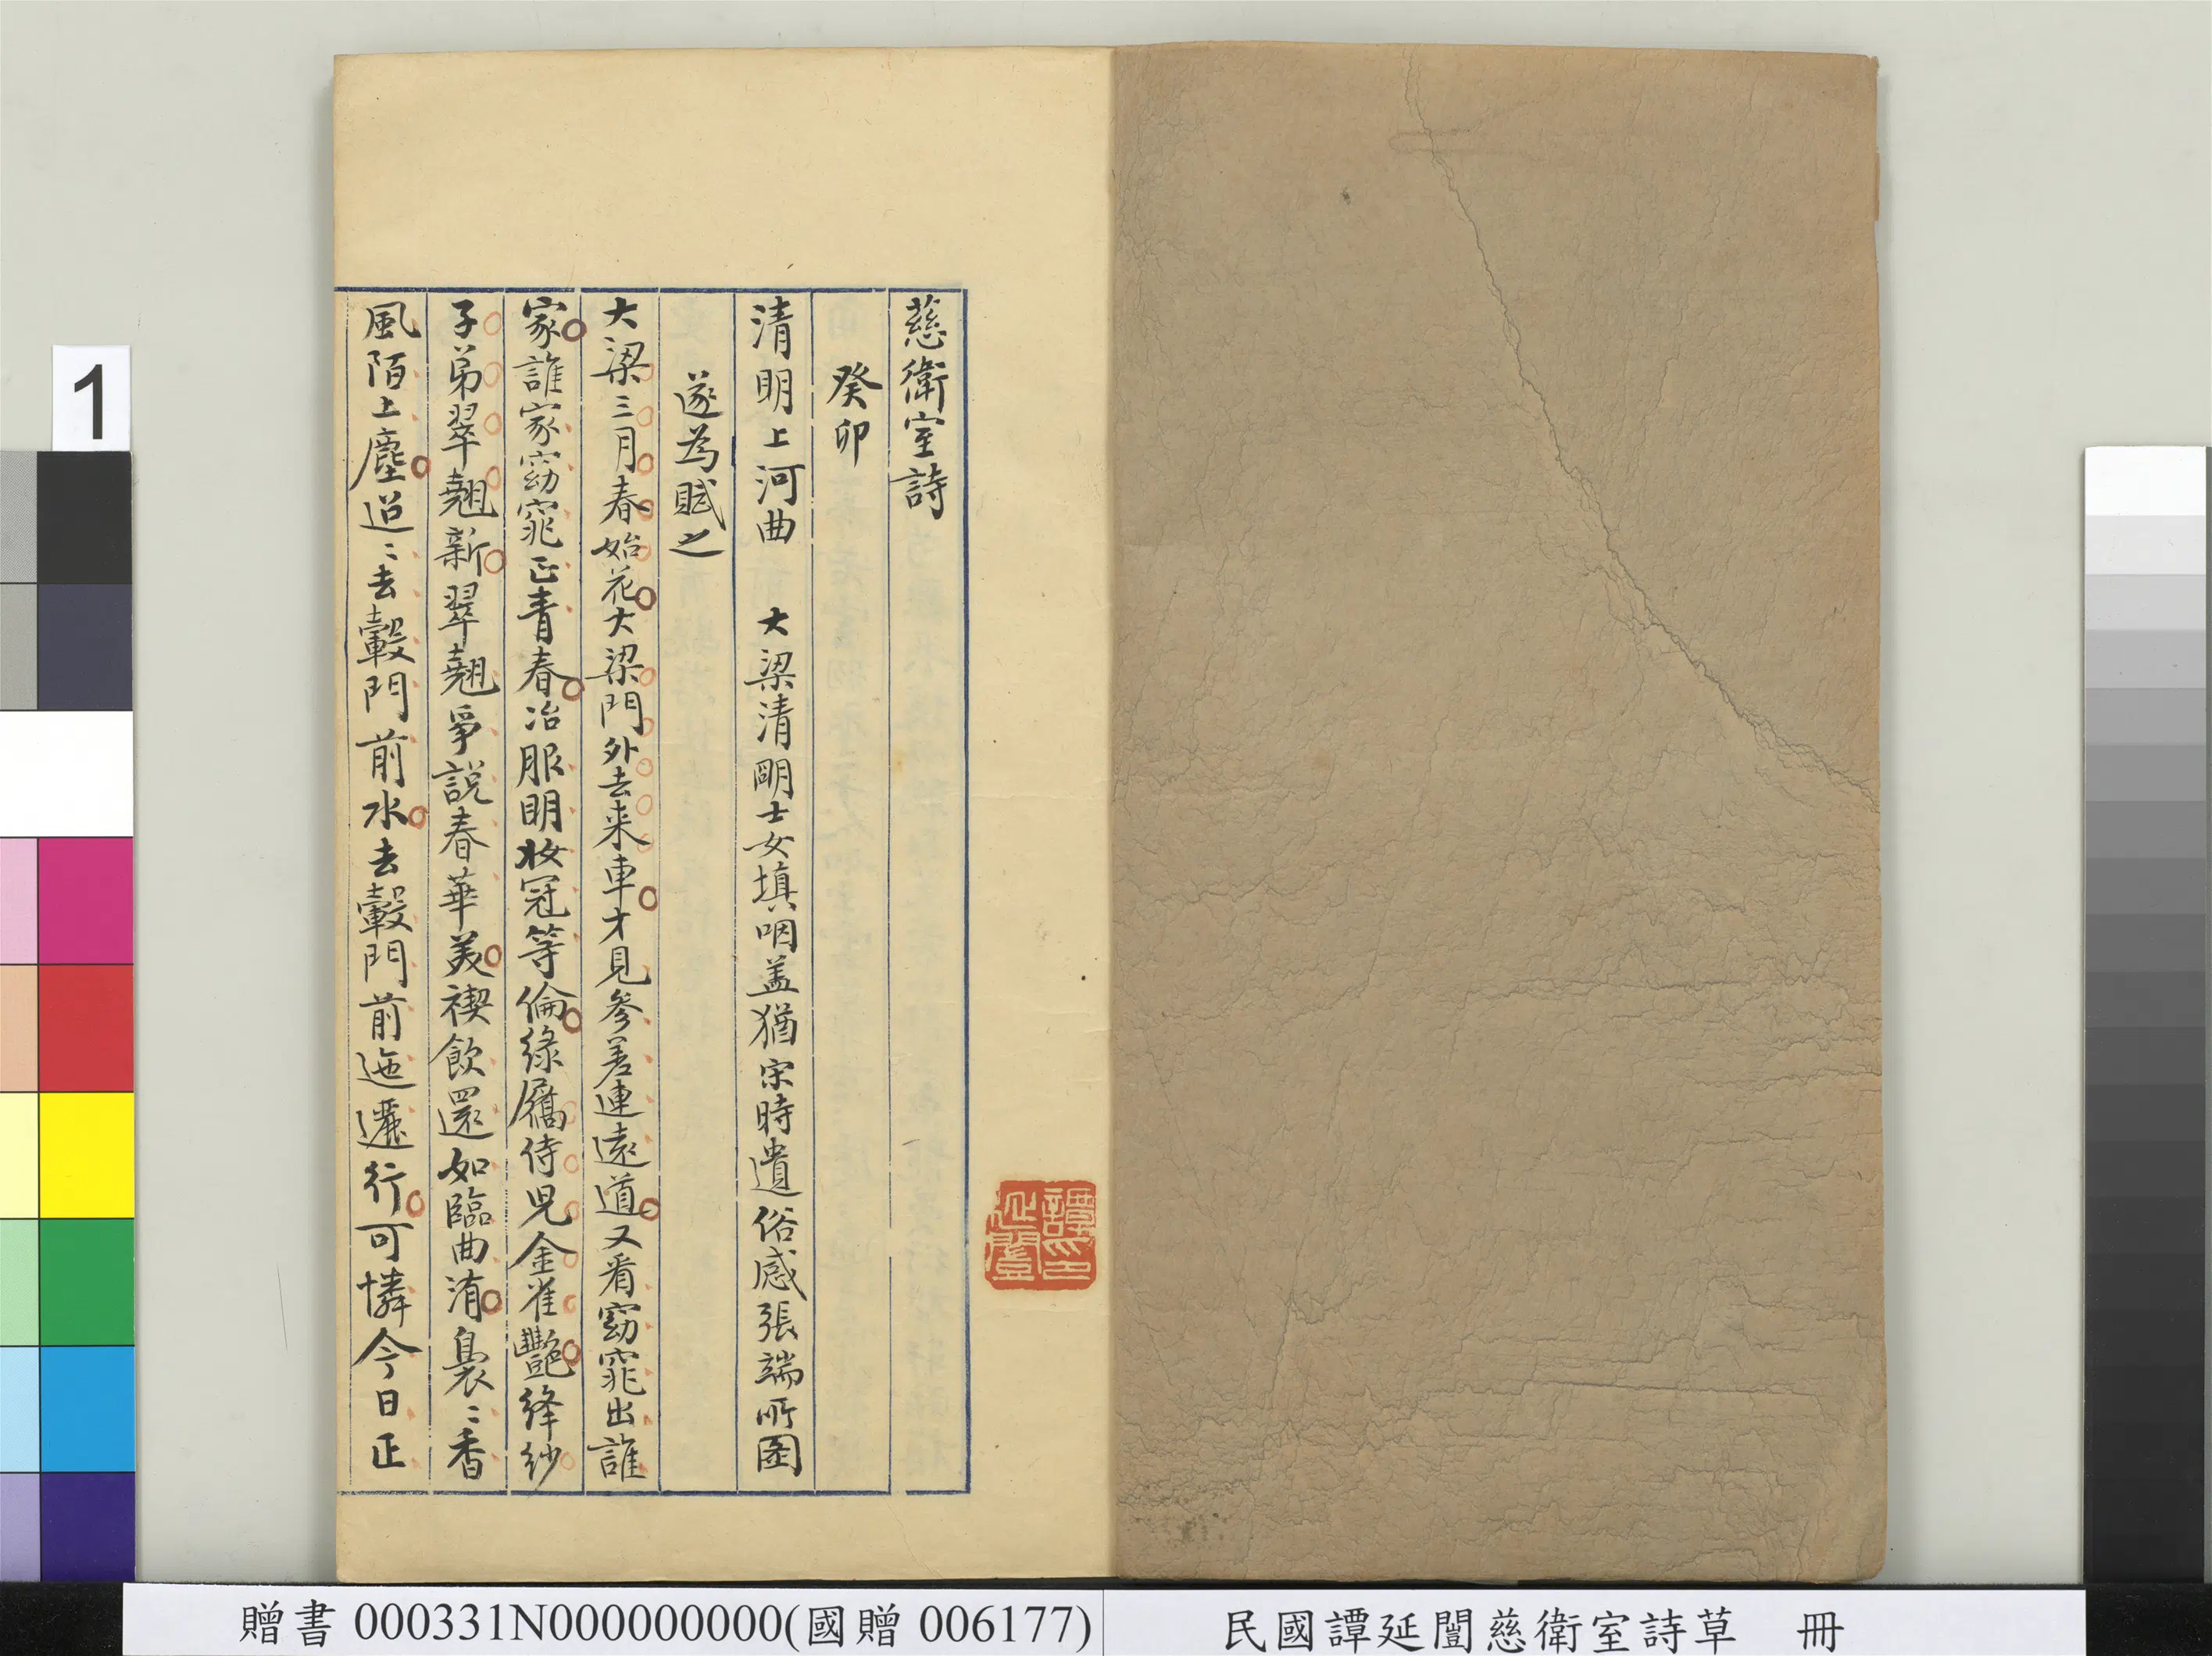 慈衛室詩
癸卯
清明上河曲 大梁清明士女填咽盖猶宋時遺俗感張端所圖
遂為賦之
大梁三月春始花大梁門外去来車才見參差連遠道又看窈窕出誰
家誰家窈窕正青春冶服明妝冠等倫綠屩侍兒金雀豔絳紗
子弟翠翹新翠翹爭說春華美禊飲還如臨曲洧裊〻香
風陌上塵迢〻去轂門前水去轂門前迤邐行可憐今日正
譚延闓印
1
贈書 000331N000000000(國贈 006177)
民國譚延闓慈衛室詩草 冊